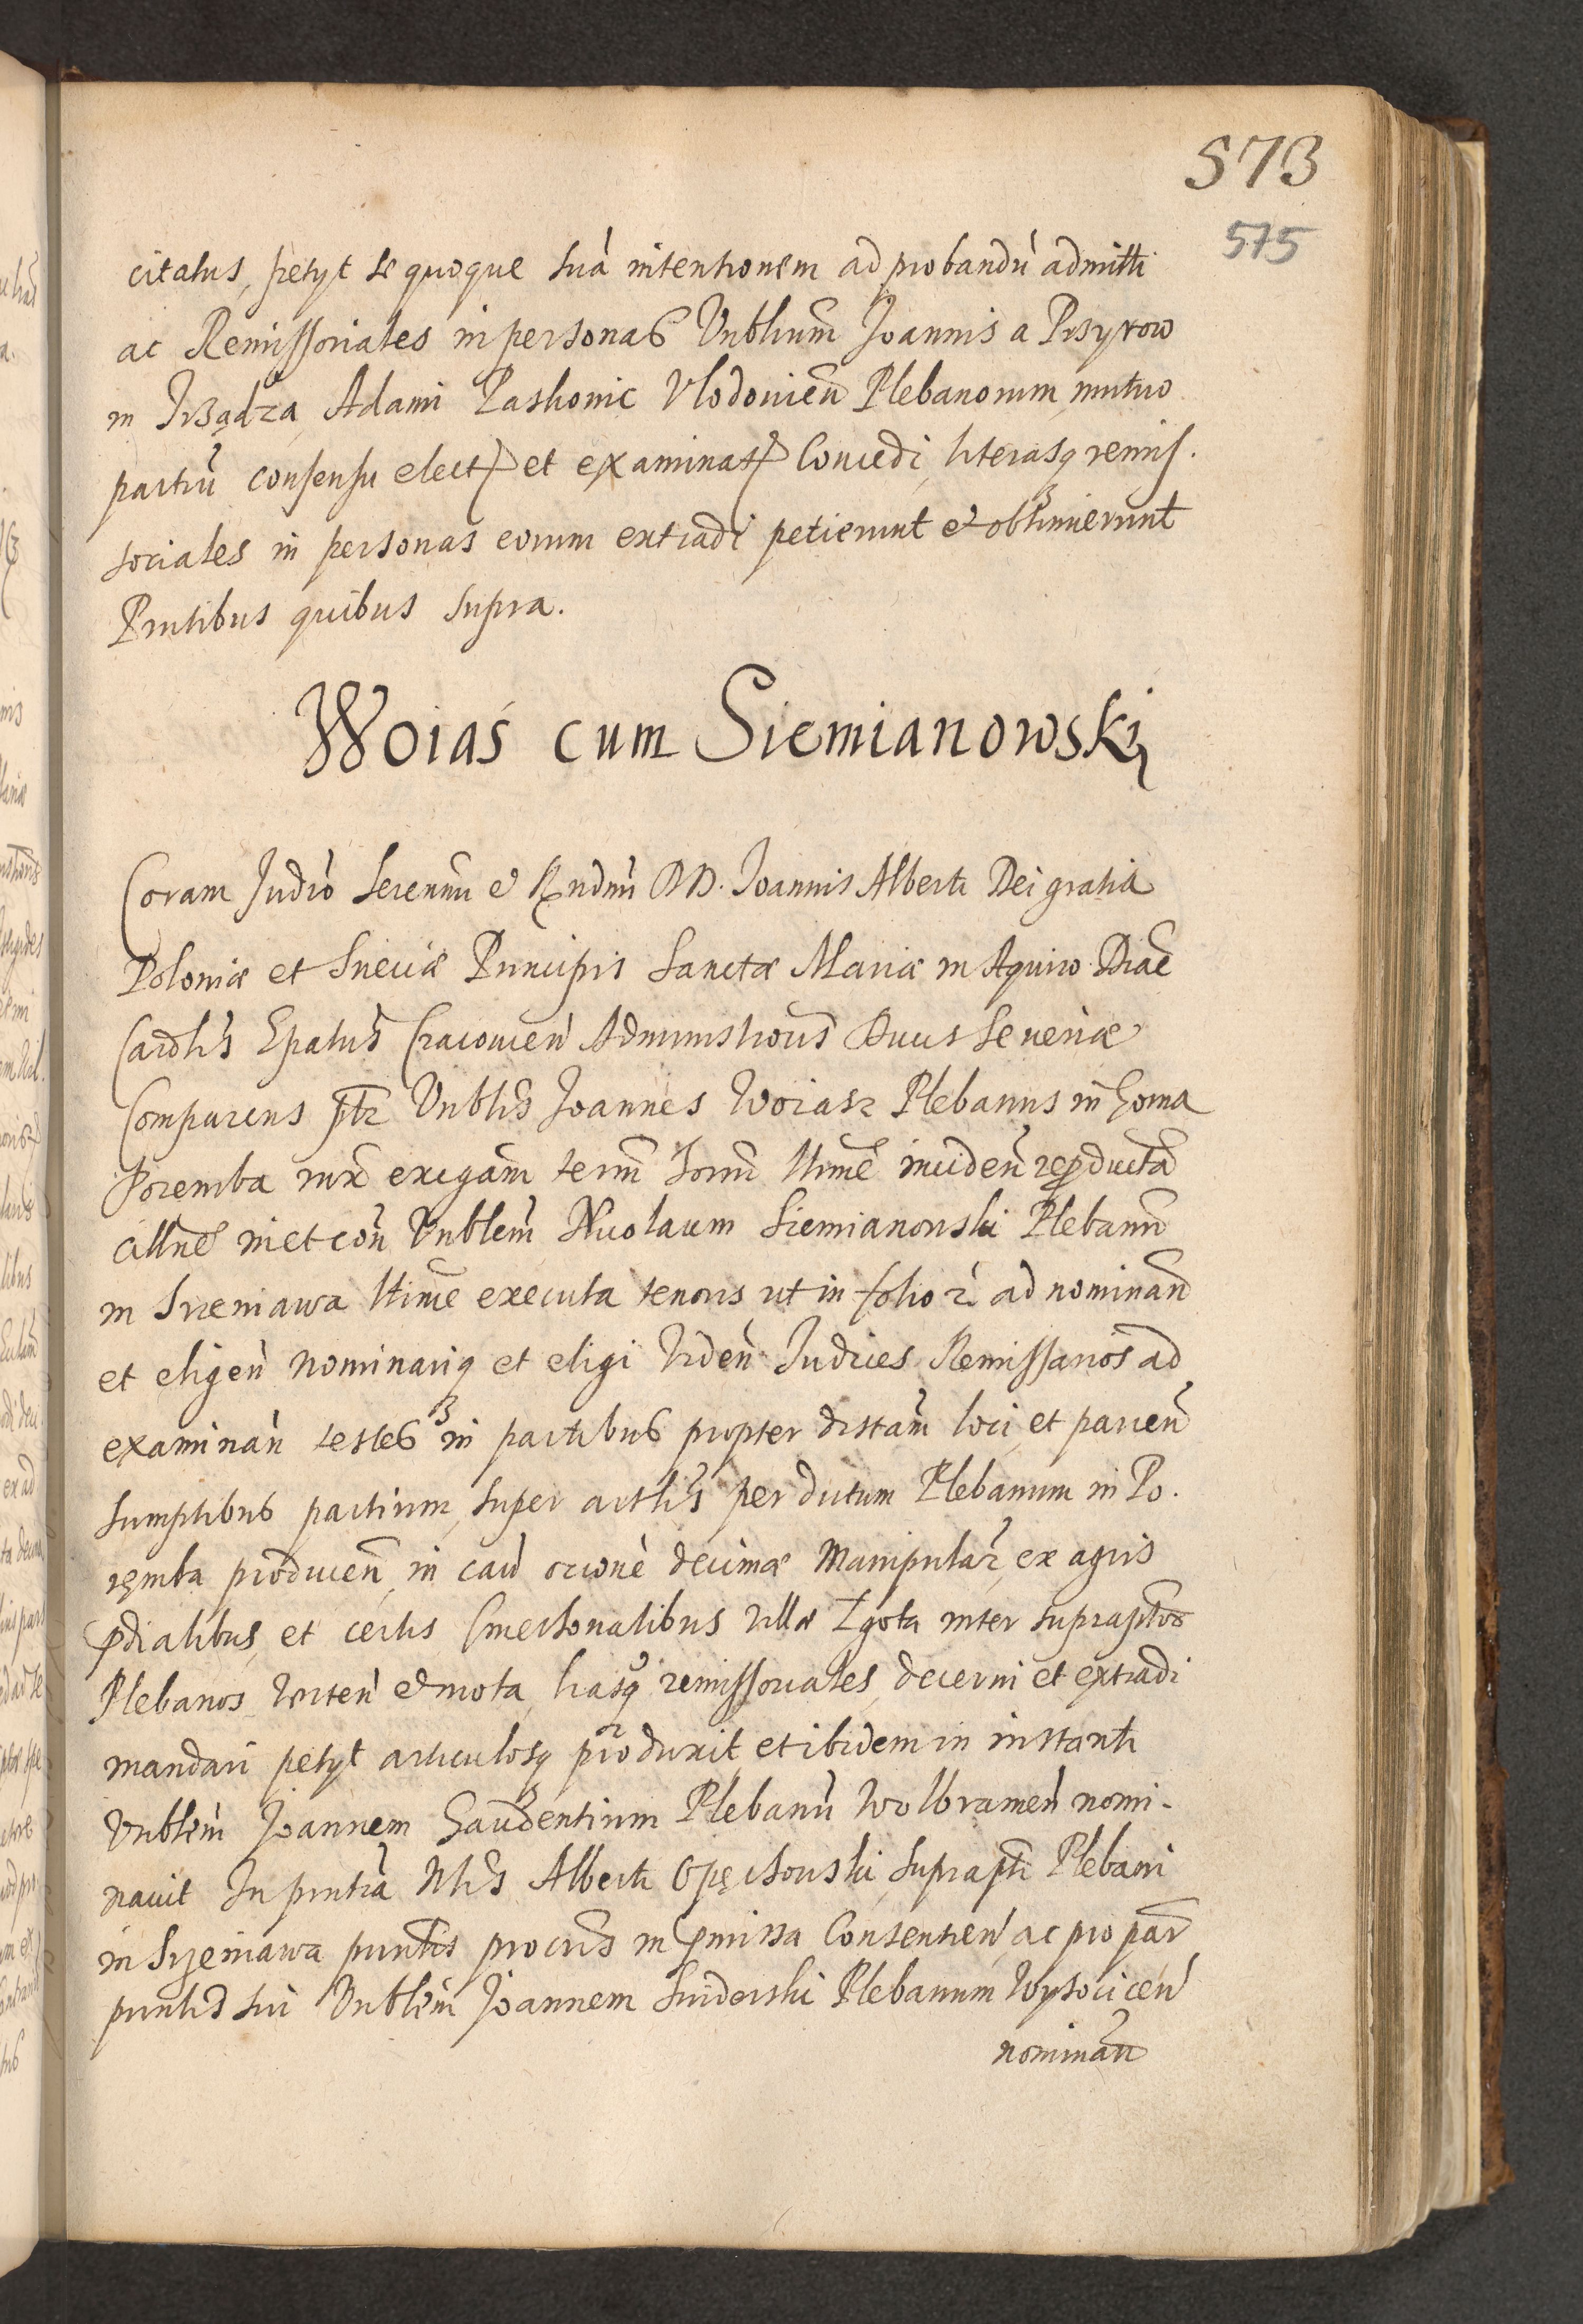 573
575
citatus, petyt se quoque suà intentionem ad probandù admitti
ac Remissoriales in personas Vnblium Joannis a Przyrow
in Irządza, Adami Pashonic Vlodovien Plebanorum, mutuo
partiù consensu elect et examinat Concedi, literasq remis.
soriales in personas eorum extradi petierunt et obtinuerunt
Pntibus quibus supra.
Woiaś cum Siemianowski
Coram Judiò Serenmi et Rndmi DD. Joannis Alberti Dei gratia
Poloniæ et Sueciæ Principis Sanctæ Mariæ in Aquiro Diac
Cardlis Epatus Cracovien Administroris Ducis Severiæ
Comparens Vnblis Joannes Woiasz Plebanus in Goma
Poremba exigam term ltimè inciden reproducta
in et con Vnblem Nicolaum Siemianowski Plebanu
in Szreniawa ltime executa tenoris ut in folio ad nominan
et eligen nominariq et eligi Viden Judices Remissarios ad
examinan testes in partibus propter distam loci, et parcen
sumptibus partium, super artlis per dictum Plebanum in Po.
ręmba producen, in cau decimæ Manipular, ex agris
pdialibus, et certis Cmetonalibus villæ Zgota inter supraptos
Plebanos verten et mota, lrasq remissoriales, decerni et extradi
mandari petyt articulosq produxit, et ibidem in instanti
Vnblem Joannem Gaudentium Plebanù Wolbramen nomi-
navit In pntia Nlis Alberti Opęchowski, suprapti Plebani
in Srzeniawa procris in pmissa Consentien, ac pro par
sui Vnblem Joannem Suiderski Plebanum Wysocicen
nominan